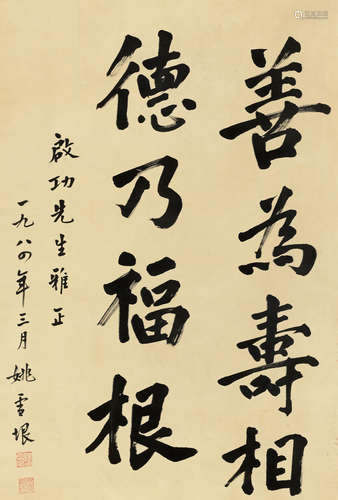 善為壽相
德乃福根
啟功先生雅正
一九八四年三月姚雪垠